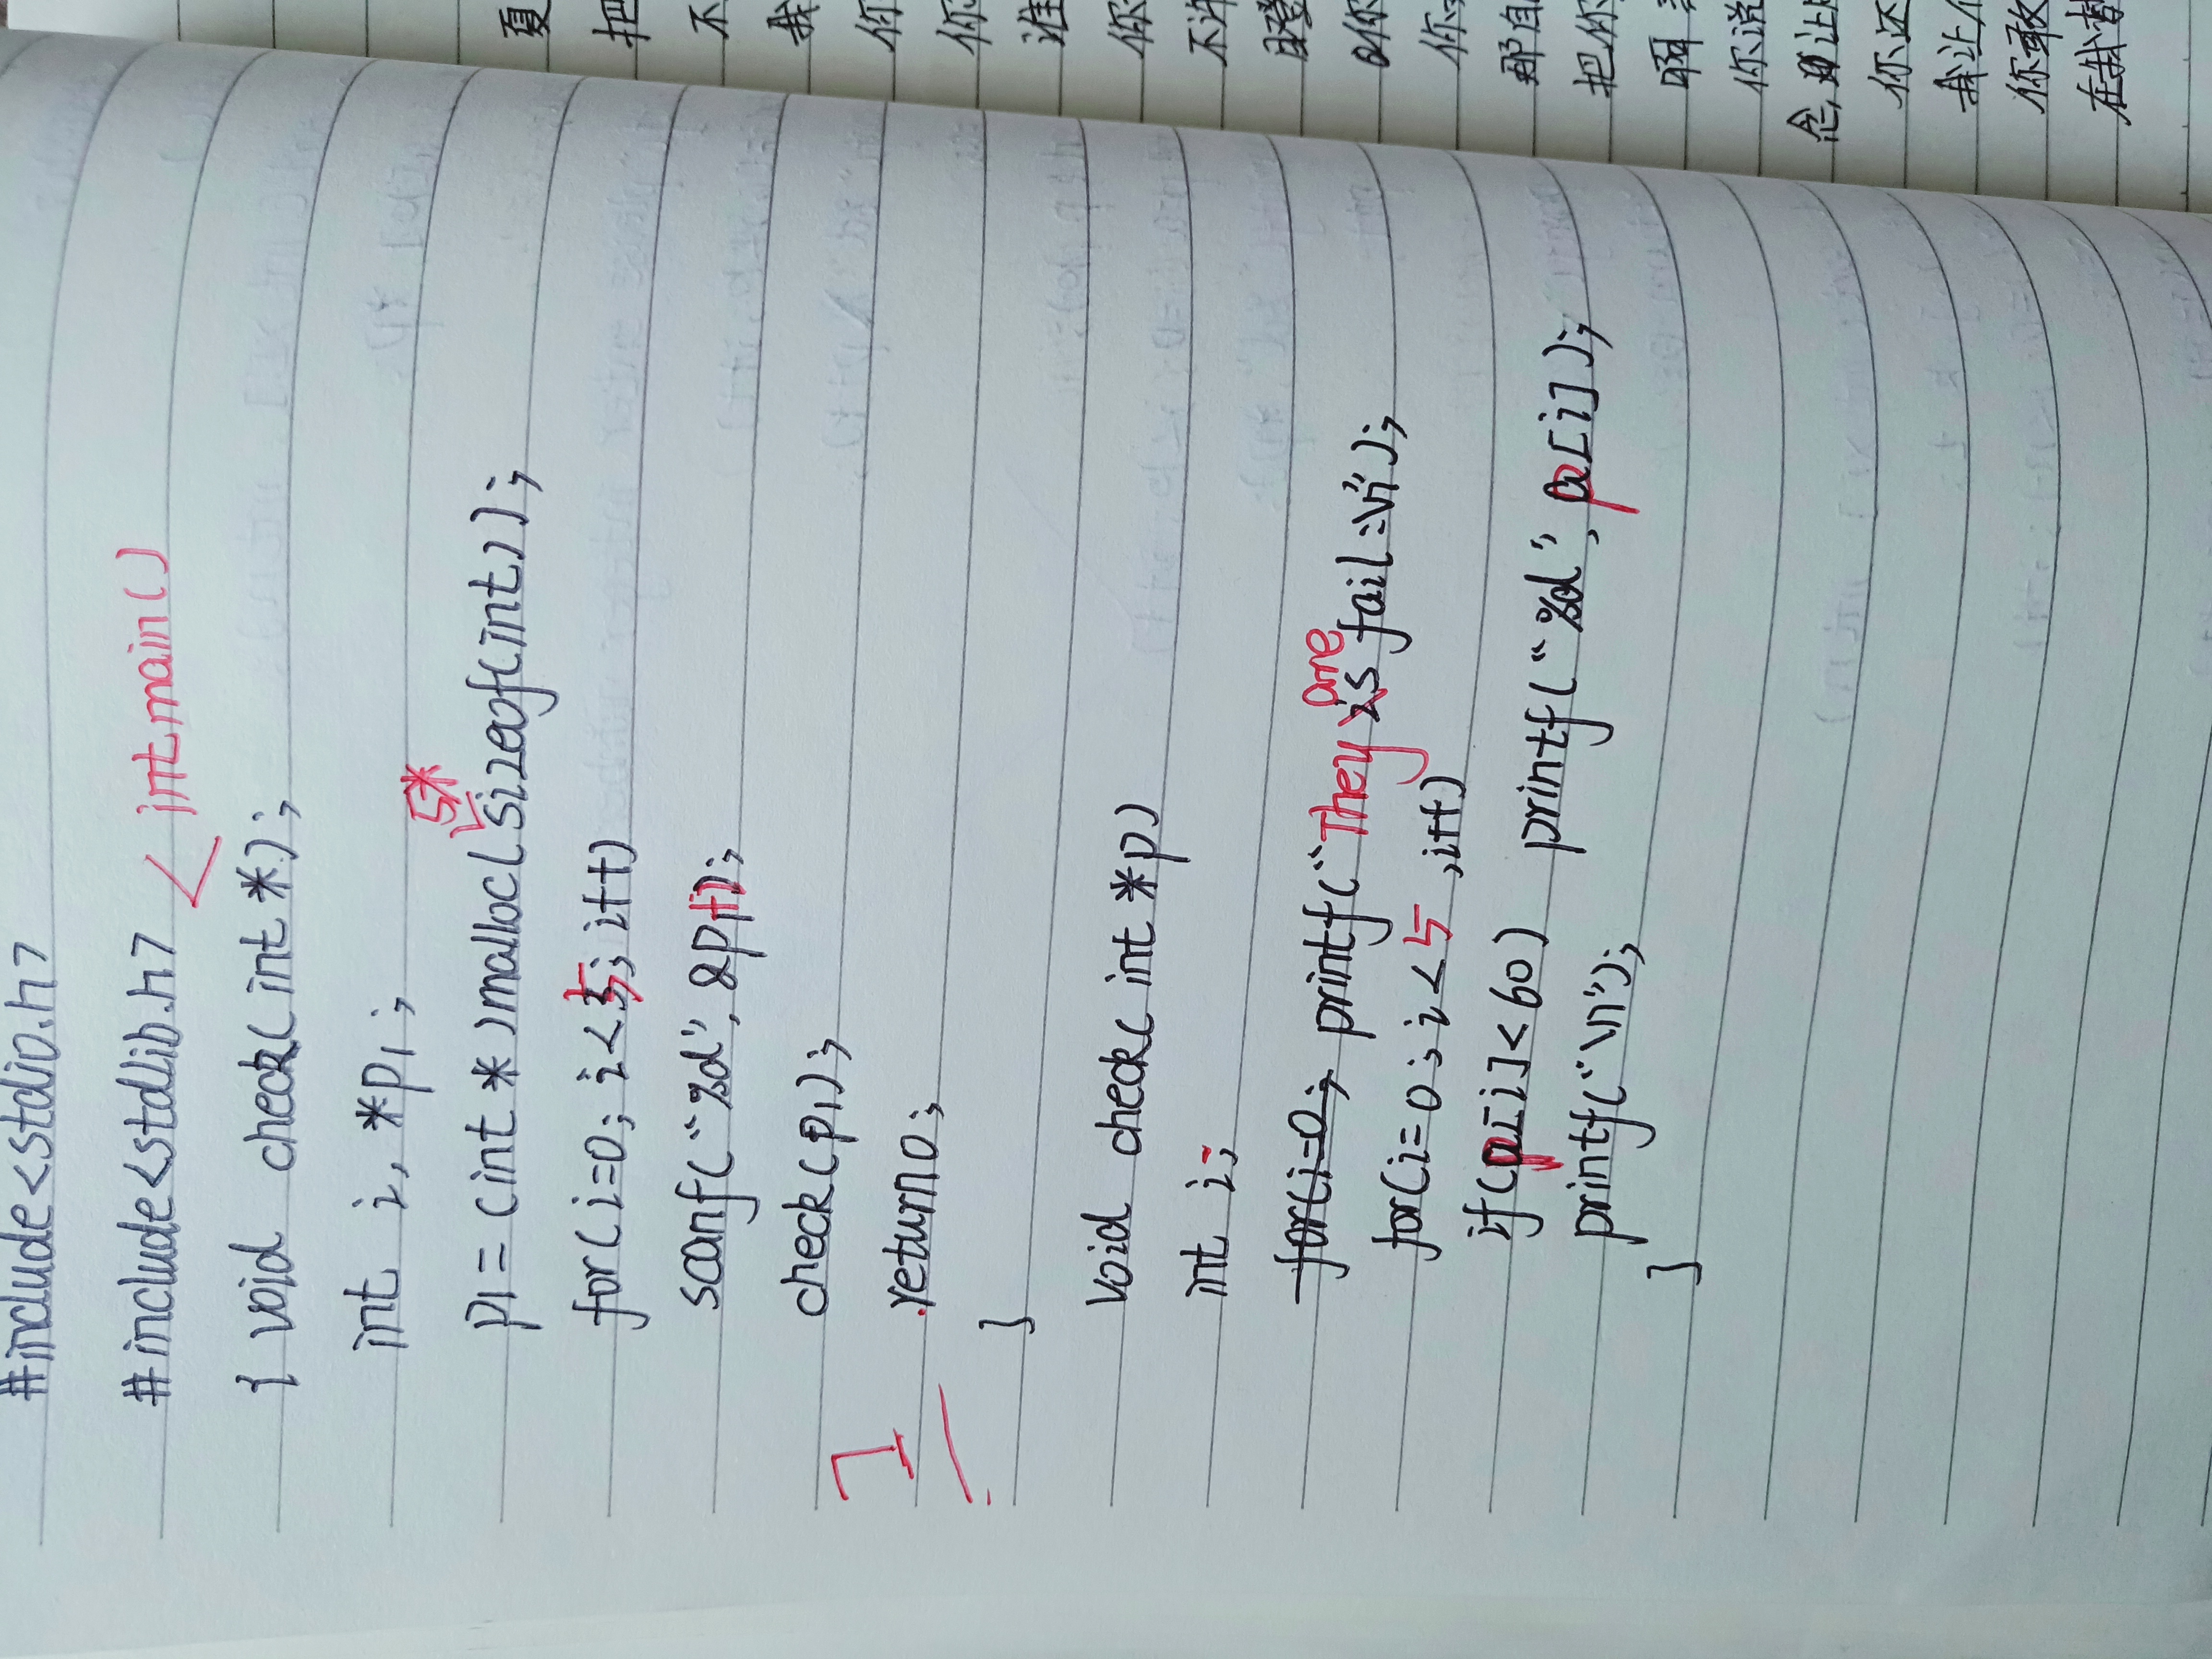 #include<stdio.h>
#include<stdlib.h>
int main()
{ void check(int *);
int i, *p1;
p1 = (int *)malloc(5*sizeof(int));
for(i=0; i<5; i++)
scanf("%d", &p1+i);
check(p1);
return 0;
}
void check(int *p)
int i;
for(i=0; printf("They are fail:\n");
for(i=0; i<5, i++)
if(p[i]<60) printf("%d", p[i]);
printf("\n");
}
夏
把
不
我
你
你
谁
你
不许
你
你
那自
把你
瞬
你说
念,
你还
我让
你敢
在我